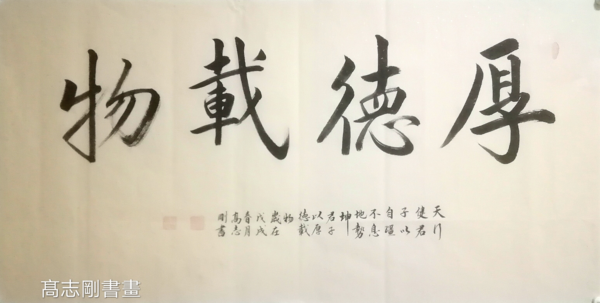 厚德載物
天行
健君
子以
自彊
不息
地勢
坤
君子
以厚
德載
物
歲在
戊戌
春月
高志
剛書
髙志剛書畫